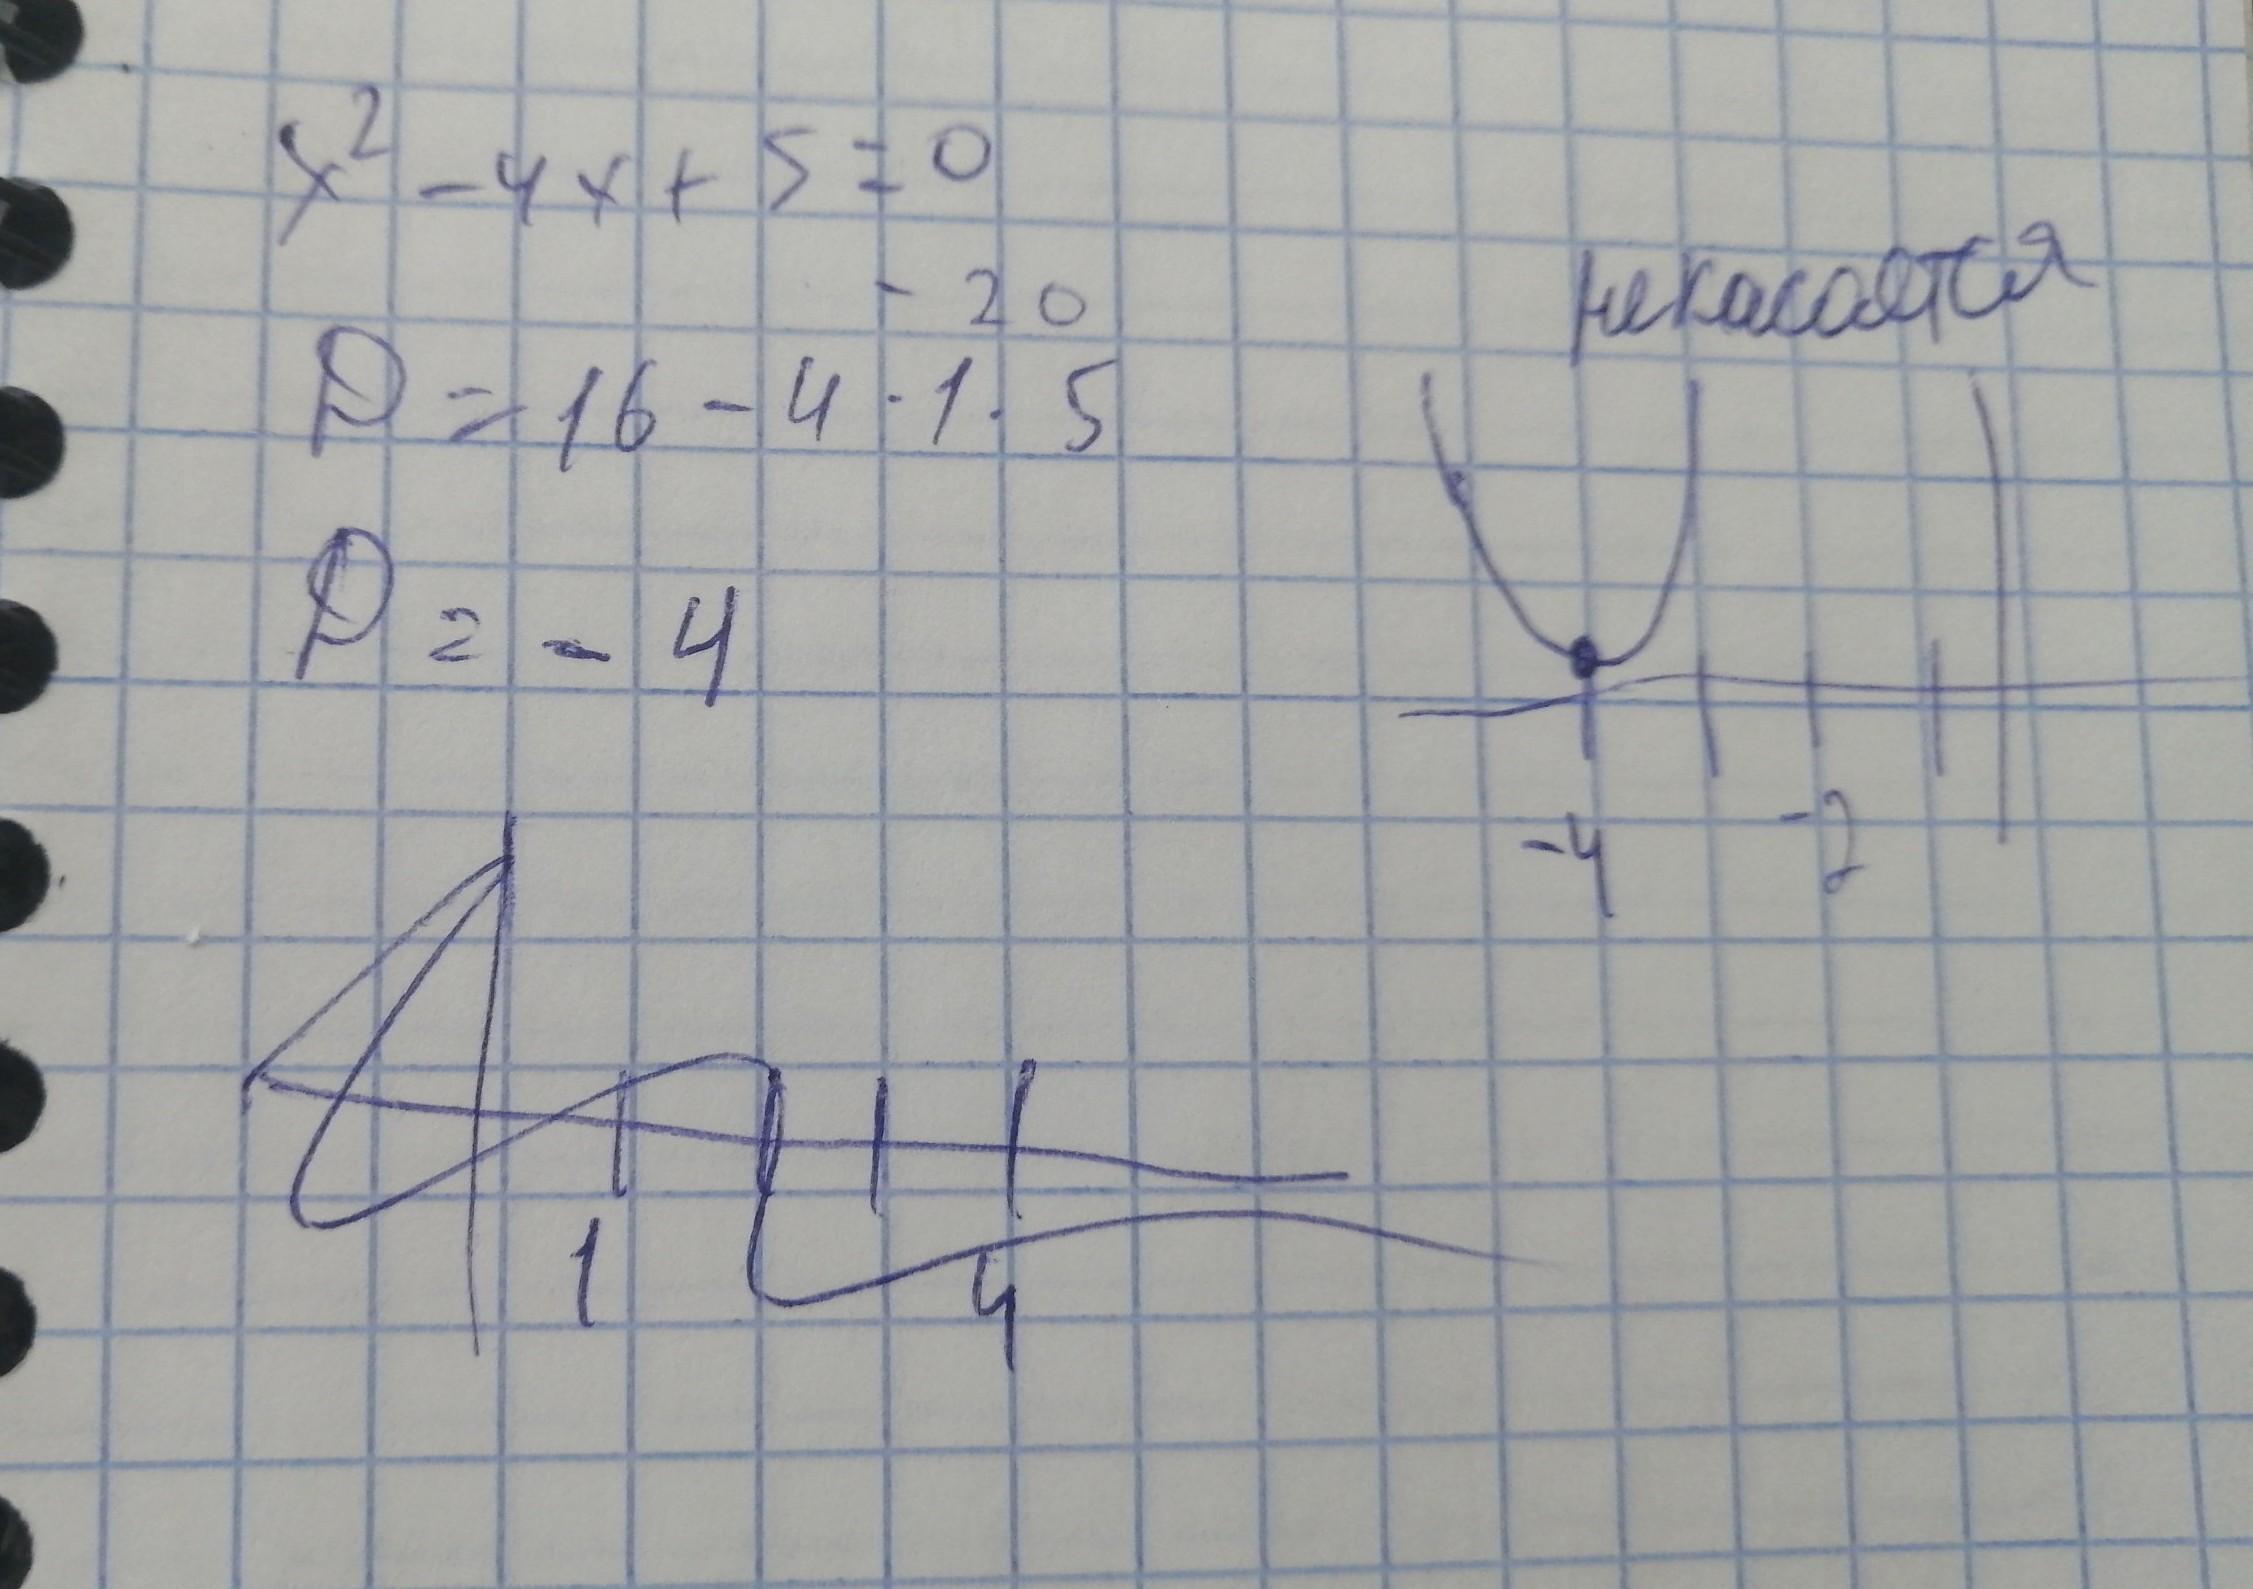 x² - 4x + 5 = 0
- 20
D = 16 - 4 · 1 · 5
D = - 4
не касается
-4 -2
1 4